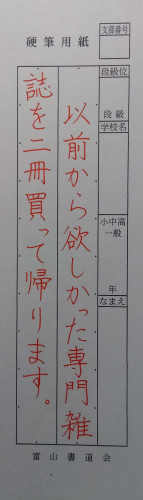 硬筆用紙
支部番号
段級位
段級
学校名
小中高
一般
年
なまえ
以前から欲しかった専門雑
誌を二冊買って帰ります。
富山書道会